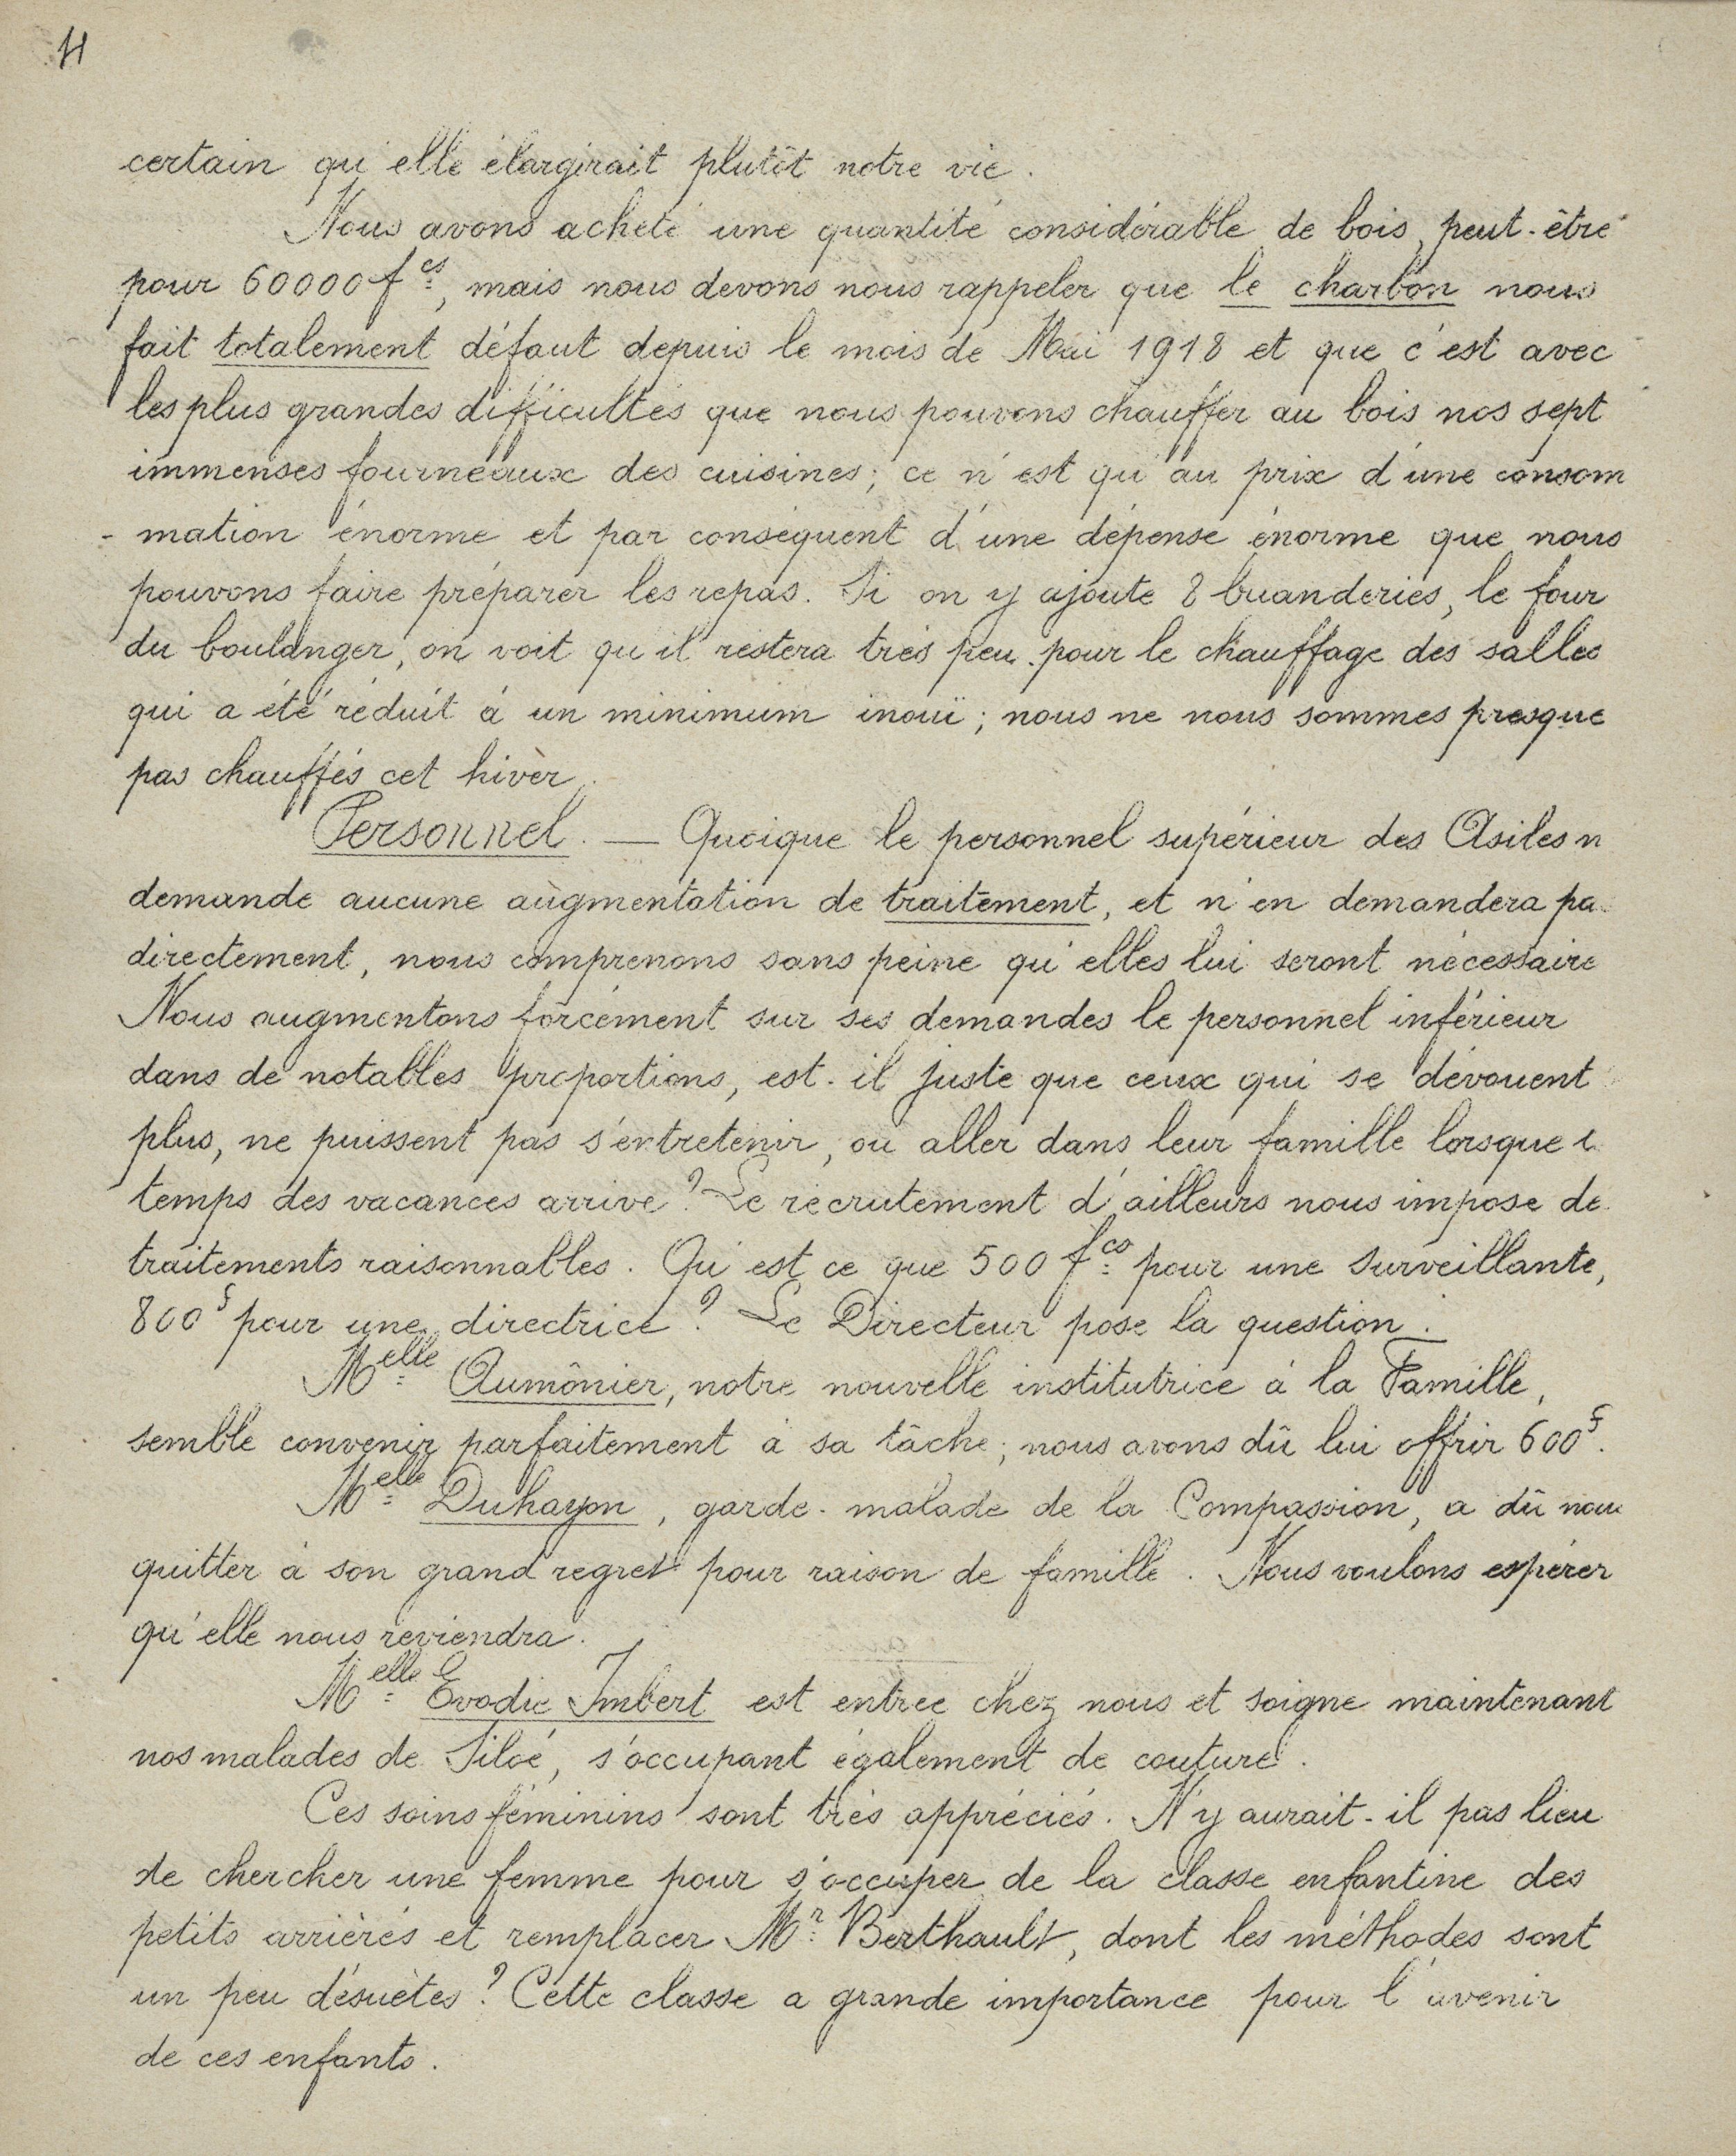 4
certain qu'elle élargirait plutôt notre vie.
Nous avons acheté une quantité considérable de bois, peut-être
pour 60000 fcs, mais nous devons nous rappeler que le charbon nous
fait totalement défaut depuis le mois de Mai 1918 et que c'est avec
les plus grandes difficultés que nous pouvons chauffer au bois nos sept
immenses fourneaux des cuisines; ce n'est qu'au prix d'une consom
-mation énorme et par conséquent d'une dépense énorme que nous
pouvons faire préparer les repas. Si on y ajoute 8 buanderies, le four
du boulanger, on voit qu'il restera très peu pour le chauffage des salles
qui a été réduit à un minimum inouï; nous ne nous sommes presque
pas chauffés cet hiver.
Personnel. — Quoique le personnel supérieur des Asiles n
demande aucune augmentation de traitement, et n'en demandera pa
directement, nous comprenons sans peine qu'elles lui seront nécessaire
Nous augmentons forcément sur ses demandes le personnel inférieur
dans de notables proportions, est-il juste que ceux qui se dévouent
plus, ne puissent pas s'entretenir, ou aller dans leur famille lorsque l
temps des vacances arrive? Le recrutement d'ailleurs nous impose de
traitements raisonnables. Qu'est ce que 500 fcs pour une surveillante,
800f pour une directrice? Le Directeur pose la question.
Melle Aumônier, notre nouvelle institutrice à la Famille,
semble convenir parfaitement à sa tâche; nous avons dû lui offrir 600f.
Melle Duhayon, garde-malade de la Compassion, a dû nou
quitter à son grand regret pour raison de famille. Nous voulons espérer
qu'elle nous reviendra.
Melle Evodie Imbert est entrée chez nous et soigne maintenant
nos malades de Siloé, s'occupant également de couture.
Ces soins féminins sont très appréciés. N'y aurait-il pas lieu
de chercher une femme pour s'occuper de la classe enfantine des
petits arriérés et remplacer Mr Berthault, dont les méthodes sont
un peu désuètes? Cette classe a grande importance pour l'avenir
de ces enfants.